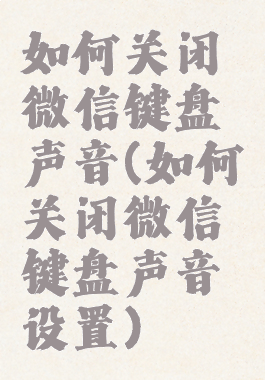 如何关闭
微信键盘
声音(如何
关闭微信
键盘声音
设置)